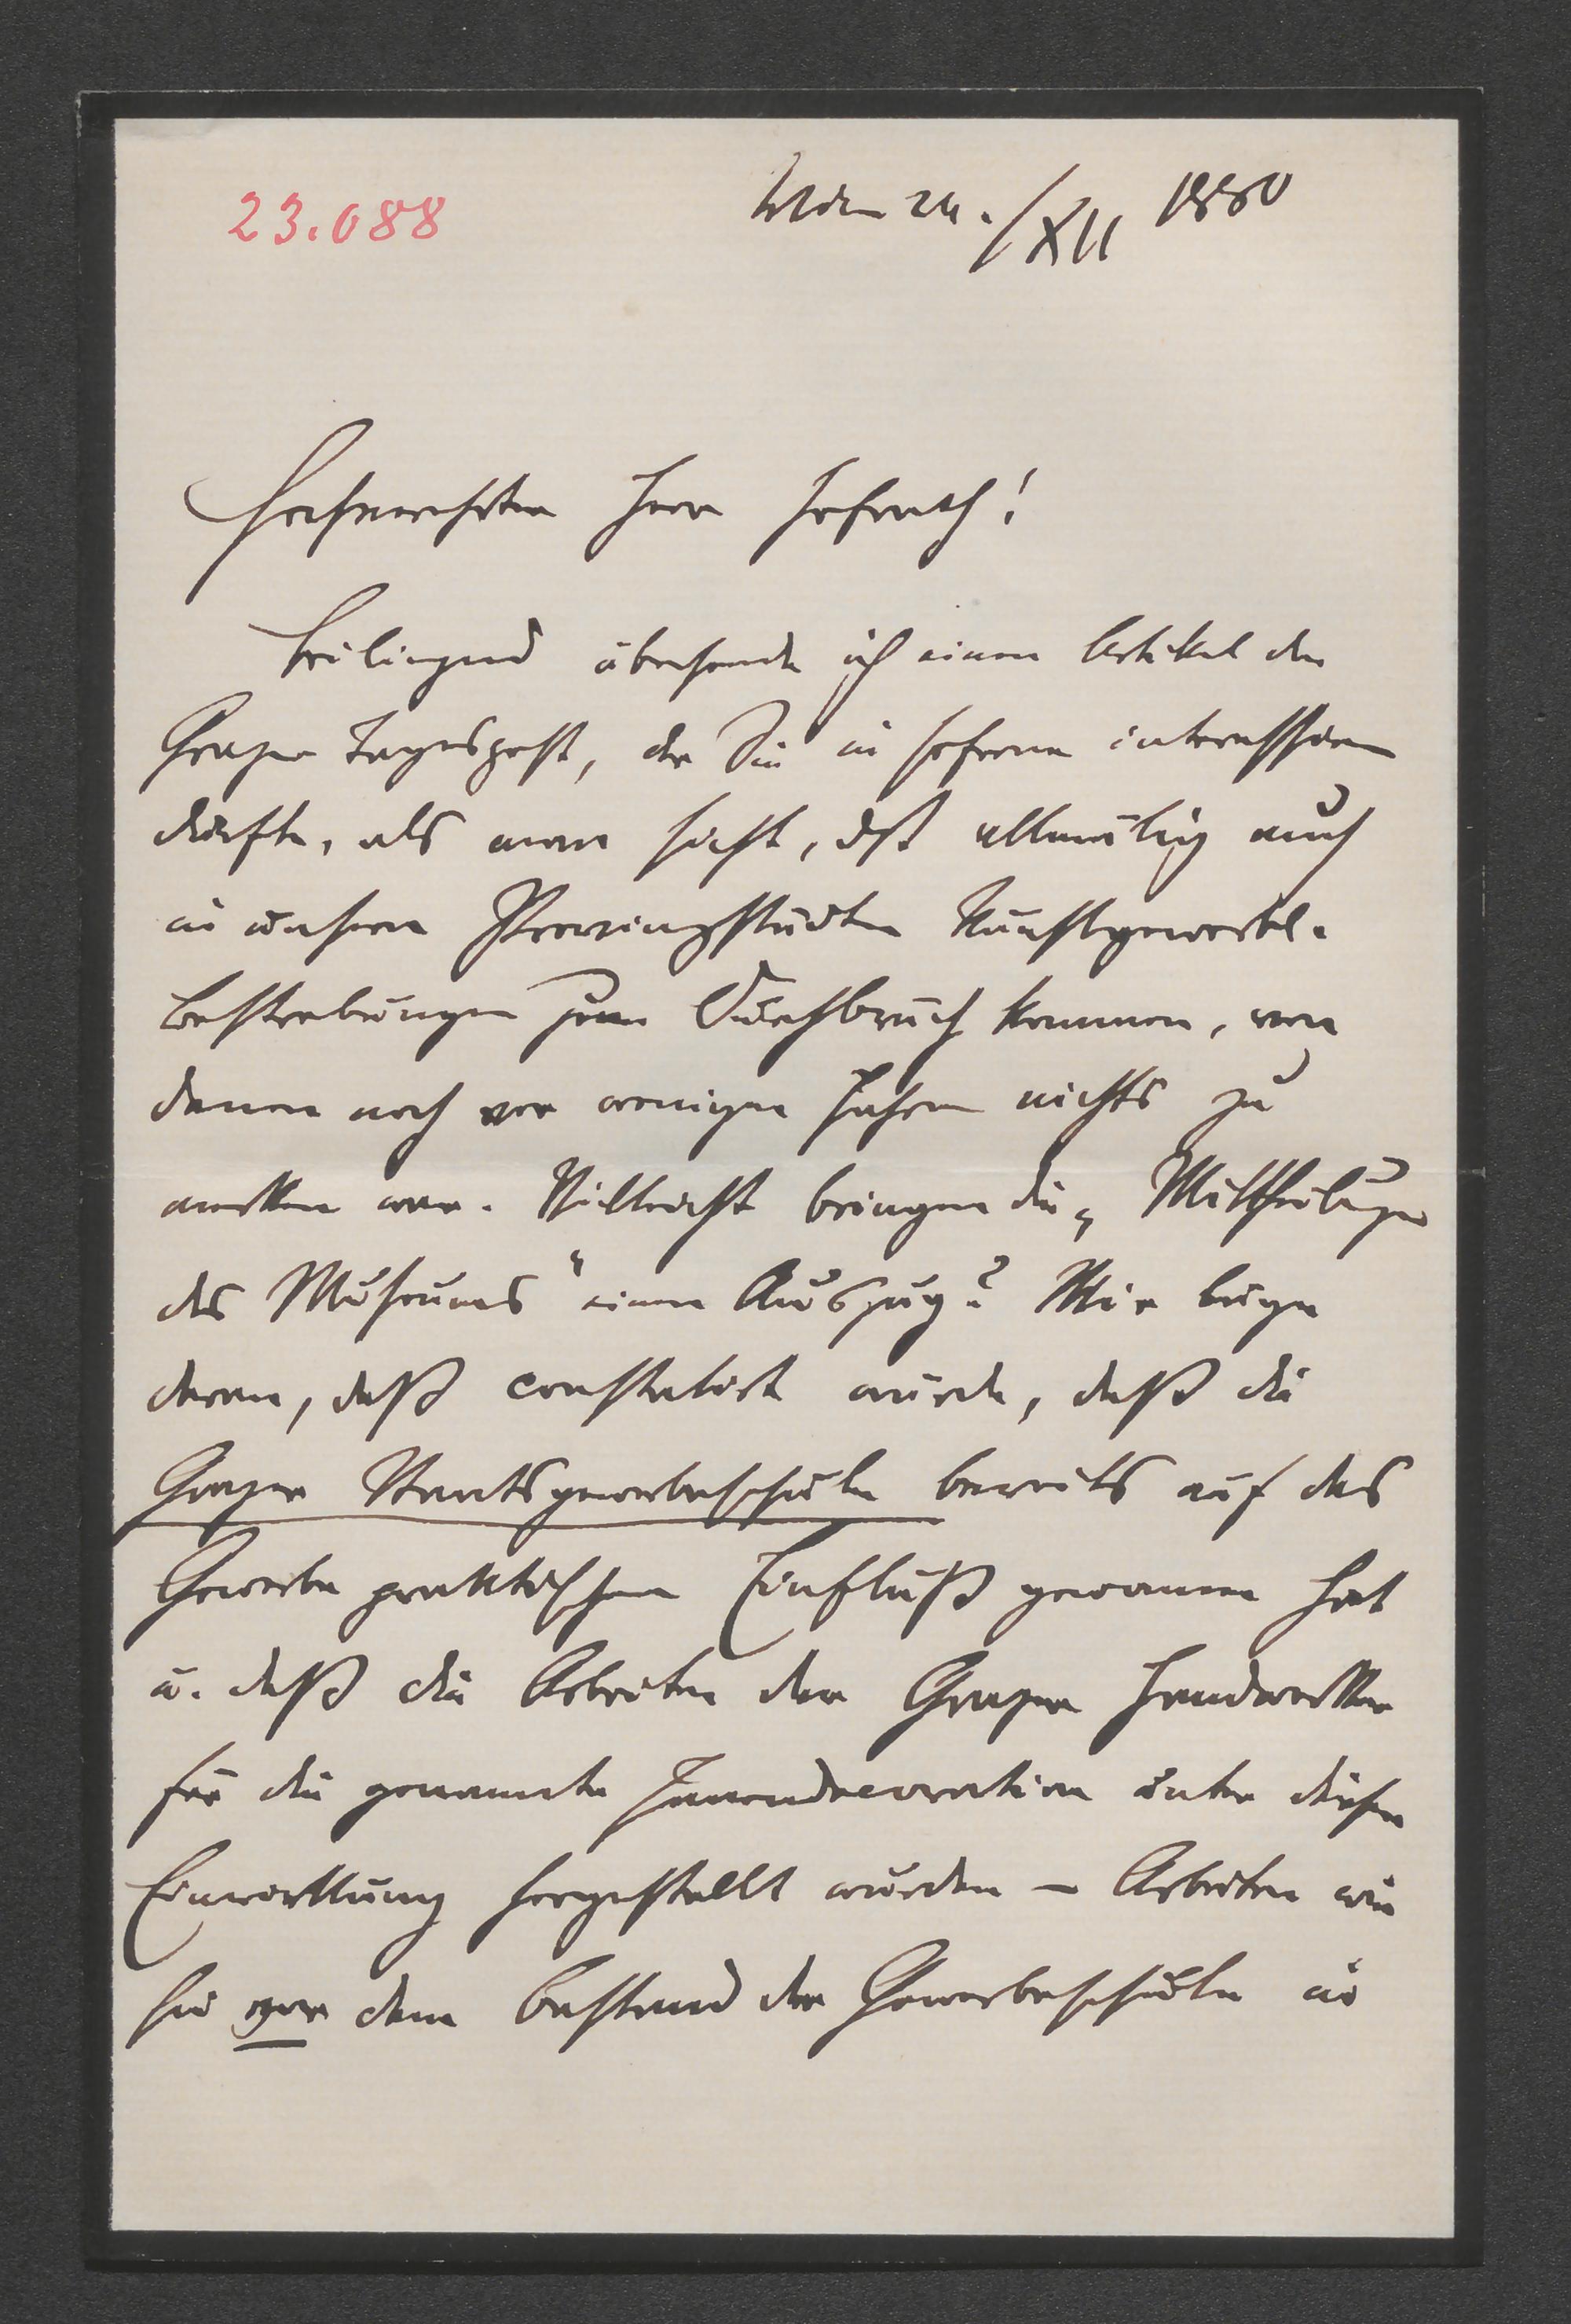 23.088
Wien 24./XII 1880
Hochverehrter Herr Hofrath!
Beiliegend übersende ich einen Artikel der
Grazer Tagespost, der Sie in soferne interessiren
dürfte, als man sieht, dß allmälig auch
in unseren Provinzstädten Kunstgewerbe-
bestrebungen zum Durchbruch kommen, von
denen noch vor wenigen Jahren nichts zu
merken war. Vielleicht bringen die „Mittheilungen
des Museums" einen Auszug? Mir liegt
daran, daß constatirt wurde, daß die
Grazer Staatsgewerbeschule bereits auf das
Gewerbe praktischen Einfluß gewonnen hat
u. daß die Arbeiten der Grazer Handwerker
für die genannte Innendecoration unter dieser
Einwirkung hergestellt wurden – Arbeiten wie
sie vor dem Bestand der Gewerbeschule in